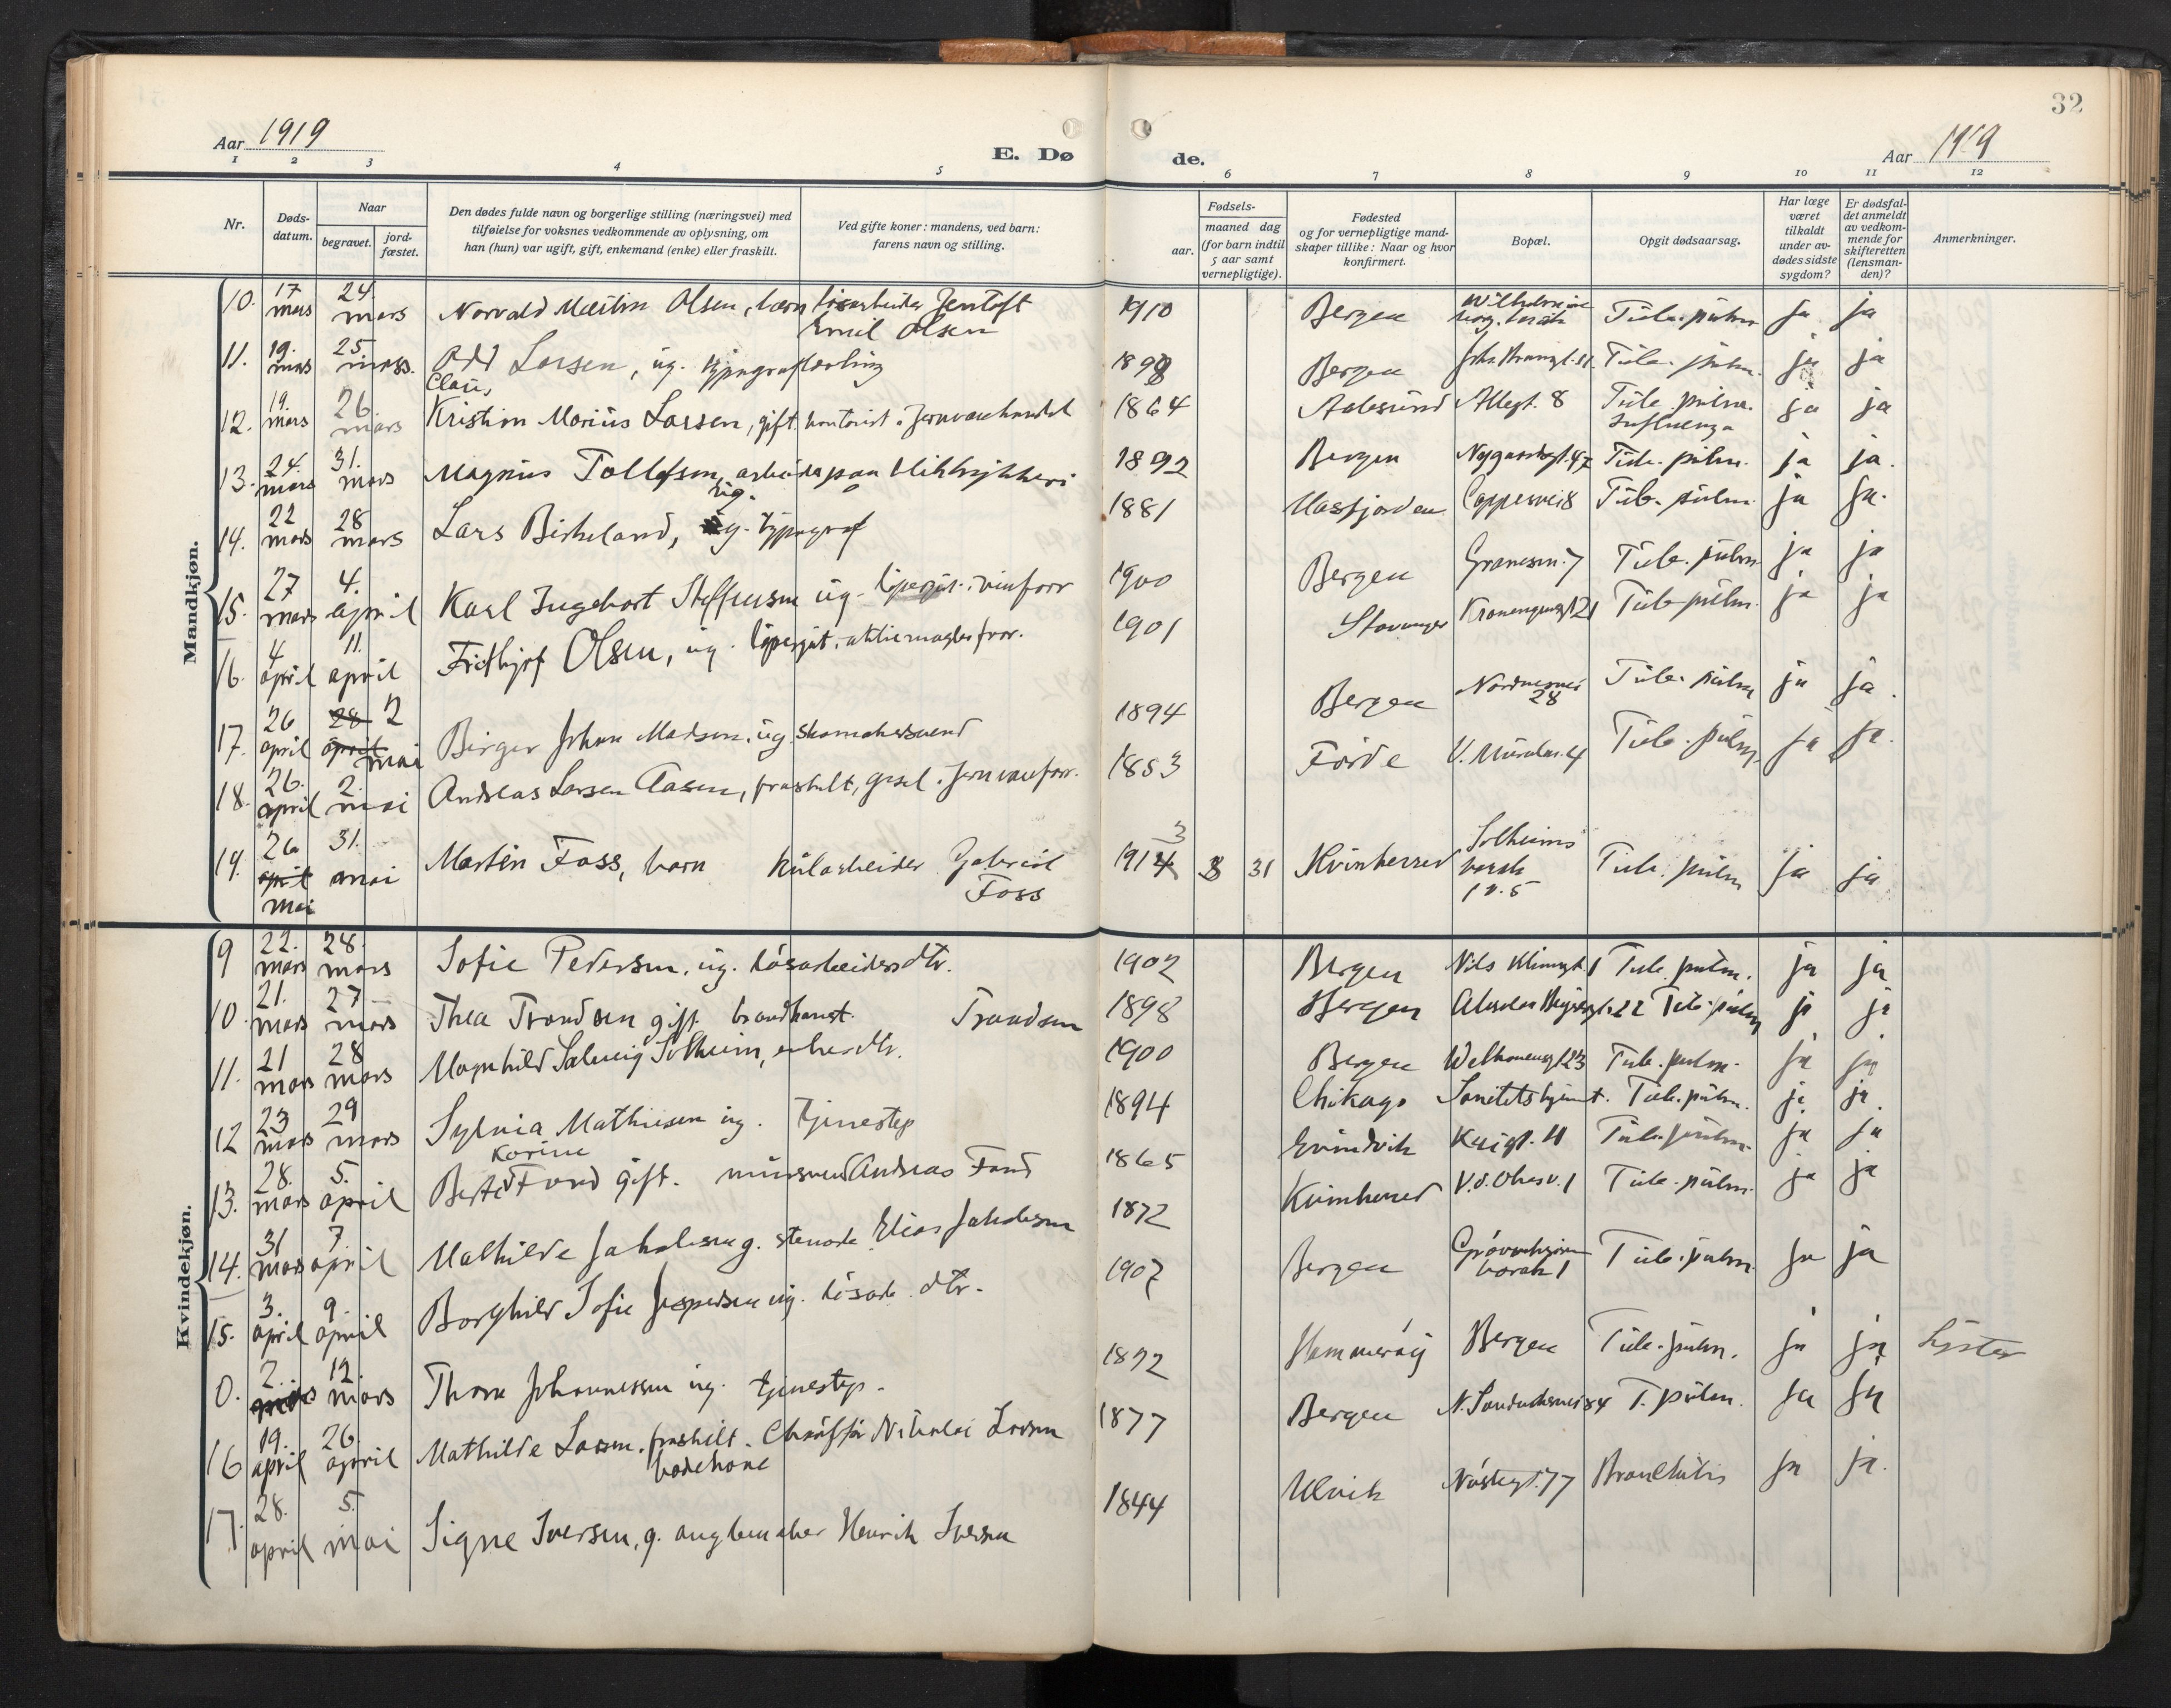 32
Aar 1919
E. Dø
de.
Aar 1919
1 2 3 4 5 6 7 8 9 10 11 12
Nr.
Døds-
datum.
Naar
begravet.
jord-
fæstet.
Den dødes fulde navn og borgerlige stilling (næringsvei) med
tilføielse for voksnes vedkommende av oplysning, om
han (hun) var ugift, gift, enkemand (enke) eller fraskilt.
Ved gifte koner: mandens, ved barn:
farens navn og stilling.
Fødsels-
aar.
maaned dag
(for barn indtil
5 aar samt
vernepligtige).
Fødested
og for vernepligtige mand-
skaper tillike: Naar og hvor
konfirmert.
Bopæl.
Opgit dødsaarsag.
Har læge
været
tilkaldt
under av-
dødes sidste
sygdom?
Er dødsfal-
det anmeldt
av vedkom-
mende for
skifteretten
(lensman-
den)?
Anmerkninger.
Mandkjøn.
10. 17 mars 24. mars Norvald Martin Olsen, barn løsarbeider Jentoft Emil Olsen 1910 Bergen Tub. pulm ja ja
11. 19. mars 25. mars. Odd Larsen, ug. typograflærling 1898 Bergen Tub. pulm. ja ja
12. 19. mars 26. mars Claus, Kristian Marius Larsen, gift. kontorist i Jernvarehandel 1864 Aalesund Allegt. 8 Tub. pulm. Influenza ja ja
13. 24. mars 31. mars Magnus Tollefsen, ug. arbeider paa blikktrykkeri 1892 Bergen Nygaardsgt. 47 Tub. pulm. ja ja.
14. 22 mars 28 mars Lars Birkeland, ug. typograf 1881 Masfjorden Tub. pulm ja ja.
15. 27 mars 4. april Karl Ingebort Steffensen ug. løpegut i vinforr 1900 Bergen Tub. pulm ja ja
16. 4 april 11. april Fridthjof Olsen, ug. løpegut i aktiemaglerforr. 1901 Stavanger Tub pulm. ja ja
17. 26 april 28 april 2 mai Birger Johan Madsen, ug. skomakersvend 1894 Bergen Nordnesvei 28 Tub. pulm ja ja.
18. 26. april 2. mai Andreas Larsen Aasen, fraskilt, gesel i Jernvareforr. 1853 Førde V. Muralm. 4 Tub. pulm. ja ja.
19. 26 april mai 31. mai Martin Foss, barn kularbeider Gabriel Foss 1914 3 8 31 Kvinherred Solheims barak 1 v. 5 Tub. pulm ja ja
Kvindekjøn.
9 22. mars 28. mars Sofie Pedersen, ug. løsarbeiders dtr. 1902 Bergen Nils Klimsgt. 1 Tub. pulm. ja ja
10. 21. mars 27 mars Thea Trondsen gift brandkonst. Trondsen 1898 Bergen Tub. pulm ja ja
11. 21 mars 28 mars Magnhild Solveig Solheim, enkes dtr. 1900 Bergen Welhavensgt 23 Tub. pulm. ja ja
12 23 mars 29 mars Sylvia Mathiesen ug. tjenestep 1894 Chikago Sanitetshjemt. Tub. pulm. ja ja.
13. 28. mars 5. april Berte Karine Fond gift. mursvend Andreas Fond 1865 Evindvik Tub. pulm. ja ja
14. 31 mars 7. april Mathilde Jakobsen g. stenarb. Elias Jakobsen 1872 Kvinherred Tub. pulm. ja ja
15. 3. april 9. april Borghild Sofie Jespersen ug. løsarb. dtr. 1907 Bergen barak 1 Tub. pulm. ja ja
0. 2. mars 12. mars Thora Johannessen ug. tjenestep. 1892 Hammerøy Bergen Tub. pulm. ja ja Lyster
16 19. april 26. april Mathilde Larsen, fraskilt. Chauffør Nikolai Larsen badekone 1877 Bergen T. pulm. ja ja
17. 28. april 5. mai Signe Iversen, g. anglemaker Henrik Iversen 1844 Ulvik Nøstegt. 77 Bronchitis ja ja.